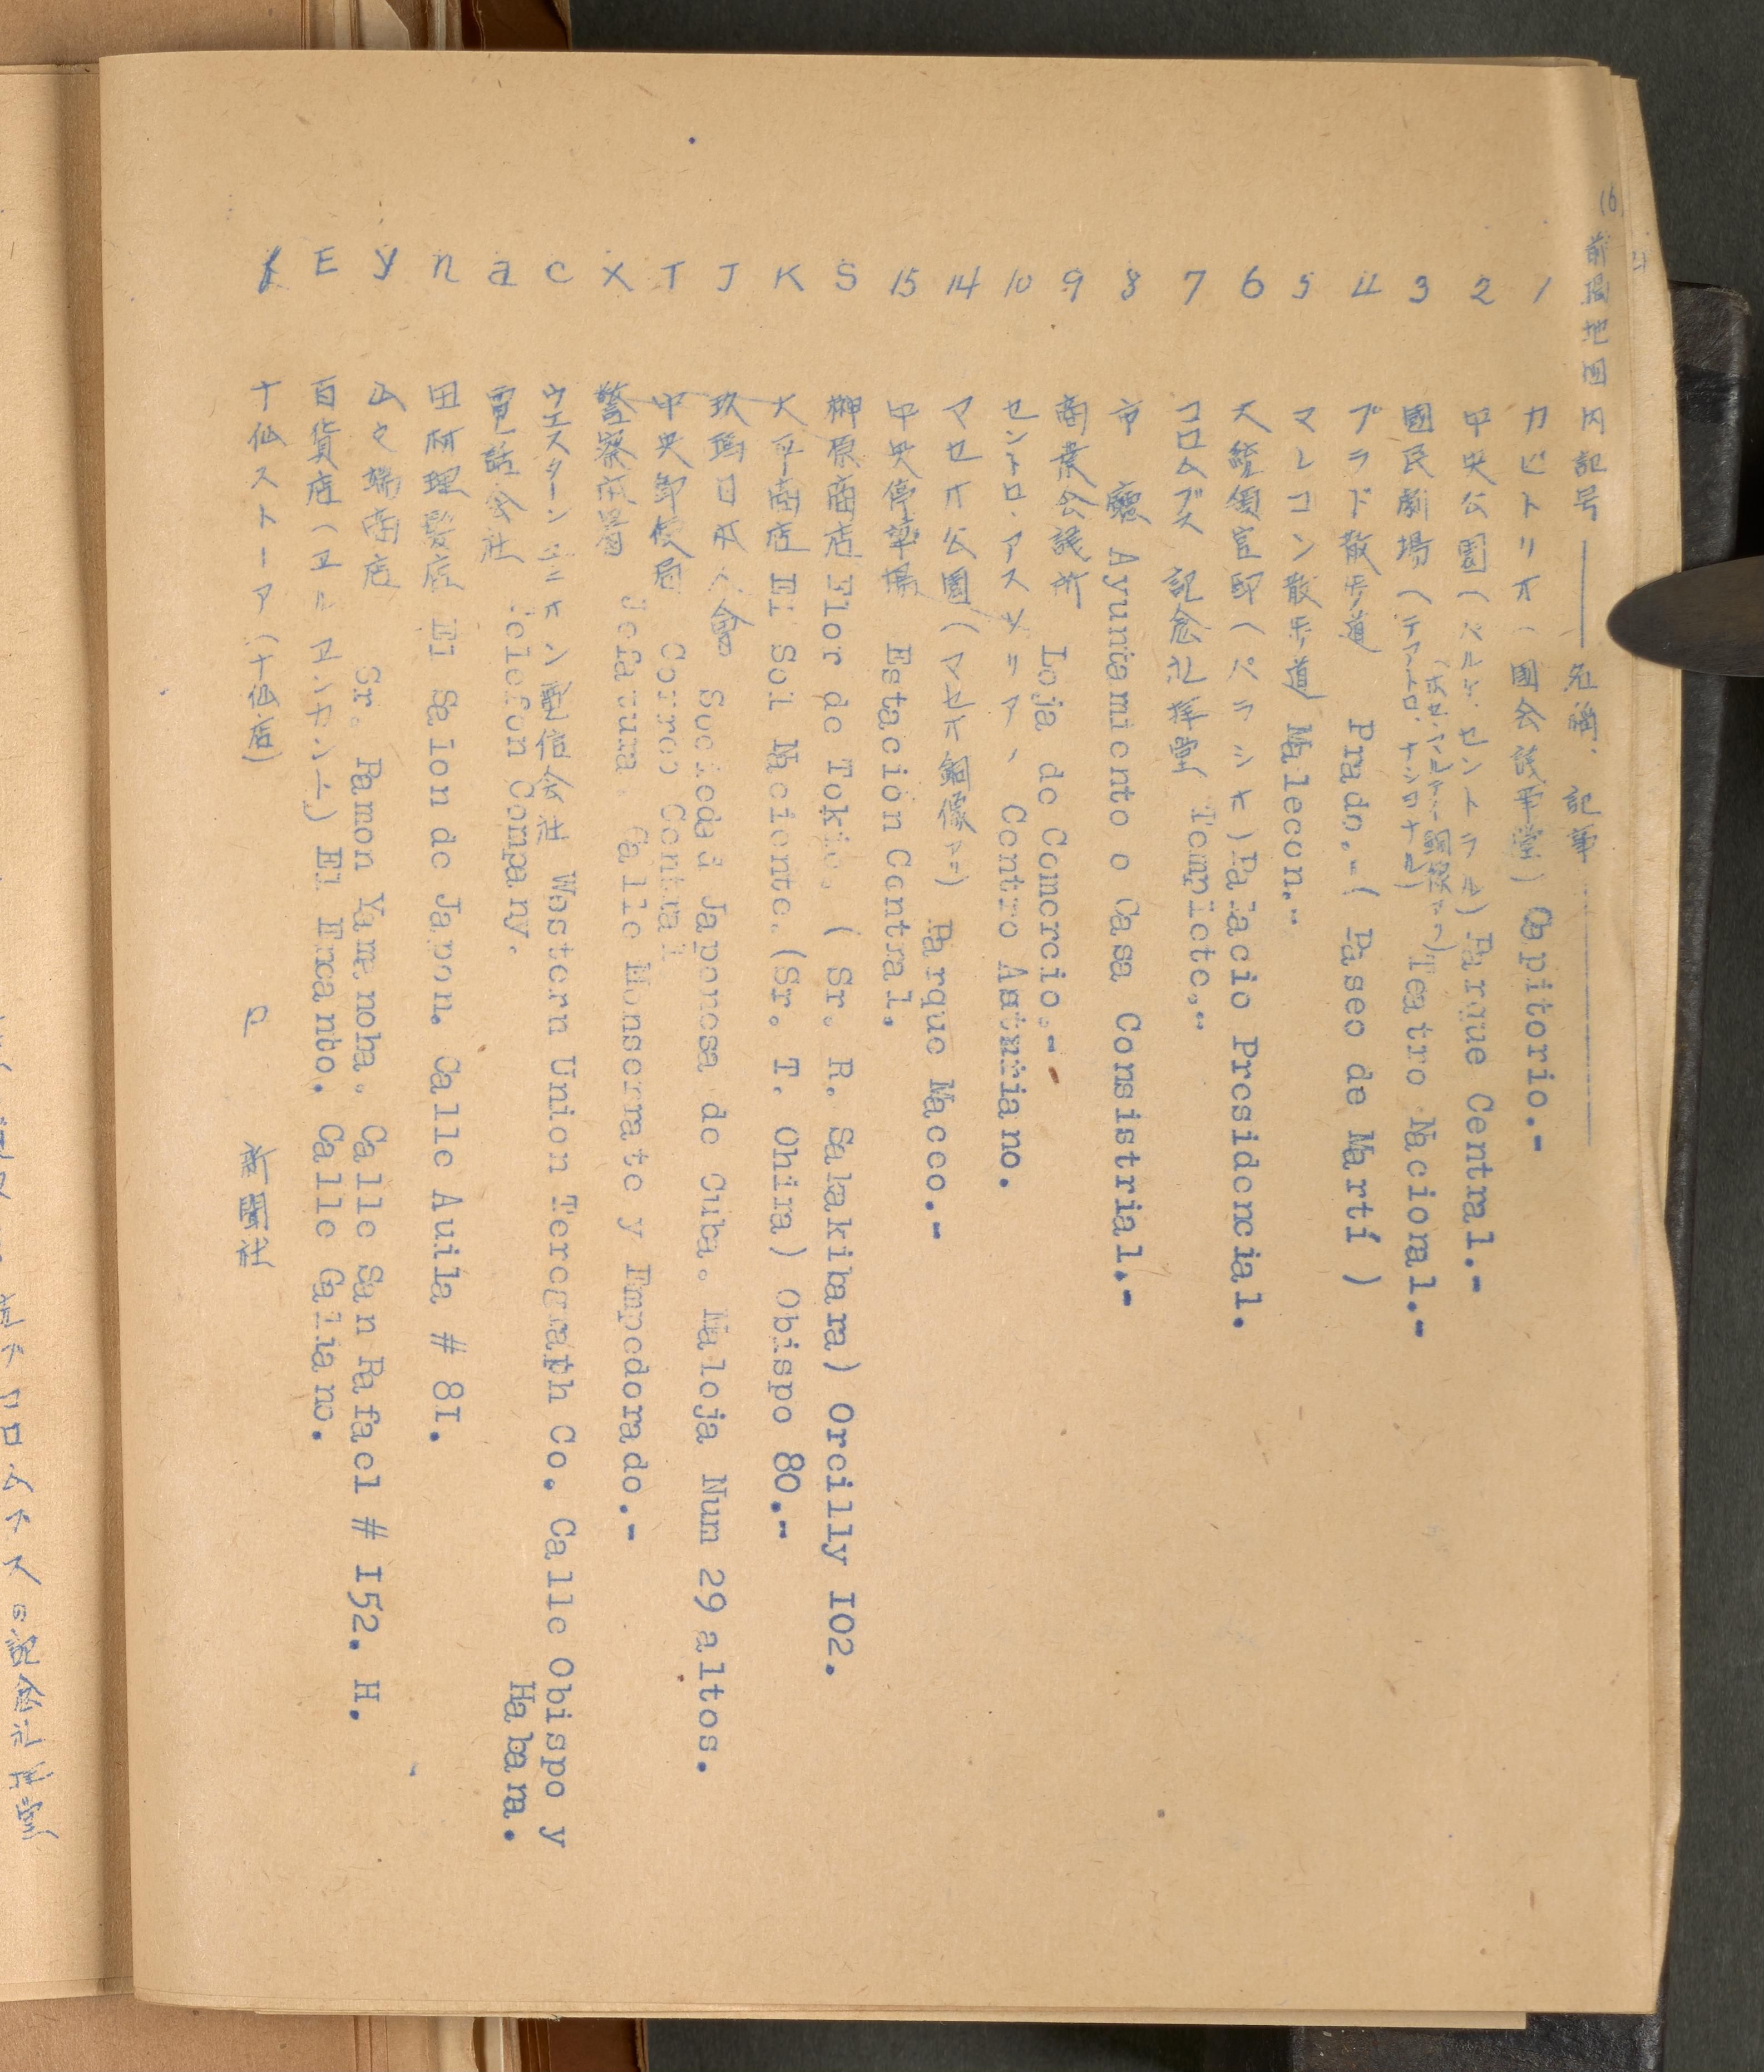 (6)
前掲地図内記号――名稱、記事
1 カピトリオ(國会議事堂) Capitorio.-
2 中央公園(パルケ、セントラル) Parque Central.-
3 國民劇場(テアトロ、ナショナル) Teatro Nacional.-
4 プラド散歩道 Prado.-( Paseo de Martí )
5 マレコン散歩道 Malecon.-
6 大統領官邸(パラッキオ) Palacio Presidencial.
7 コロムブス 記念礼拝堂 Templete.-
8 市廳 Ayuntamiento o Casa Consistrial.-
9 商業会議所 Loja de Comercio.--
10 セントロ・アスツリアノ Centro Asturiano.
14 マセオ公園(マセオ銅像アリ) Parque Maceo.-
15 中央停車場 Estación Central.
S 榊原商店 Flor de Tokio. ( Sr. R. Sakakibara) Oreilly I02.
K 大平商店 El Sol Naciente.(Sr. T. Ohira) Obispo 80.-
J 玖瑪日本人會 Suciedad Japonesa de Cuba. Maloja Num 29 altos.
T 中央郵便局 Correo Central
X 警察本署 Jefatura. Calle Monserrate y Empedorado.-
C ウエスターンユニオン電信会社 Western Union Teregraph Co. Calle Obispo y Habana.
a 電話会社 Telefon Company.
n 田村理髪店 El Salon de Japon. Calle Auila # 8I.
y 山之端商店 Sr. Ramon Yamanoha. Calle San Rafael # I52. H.
E 百貨店(エルエンカント) El Encanto. Calle Galiano.
十仙ストーア(十仙店)